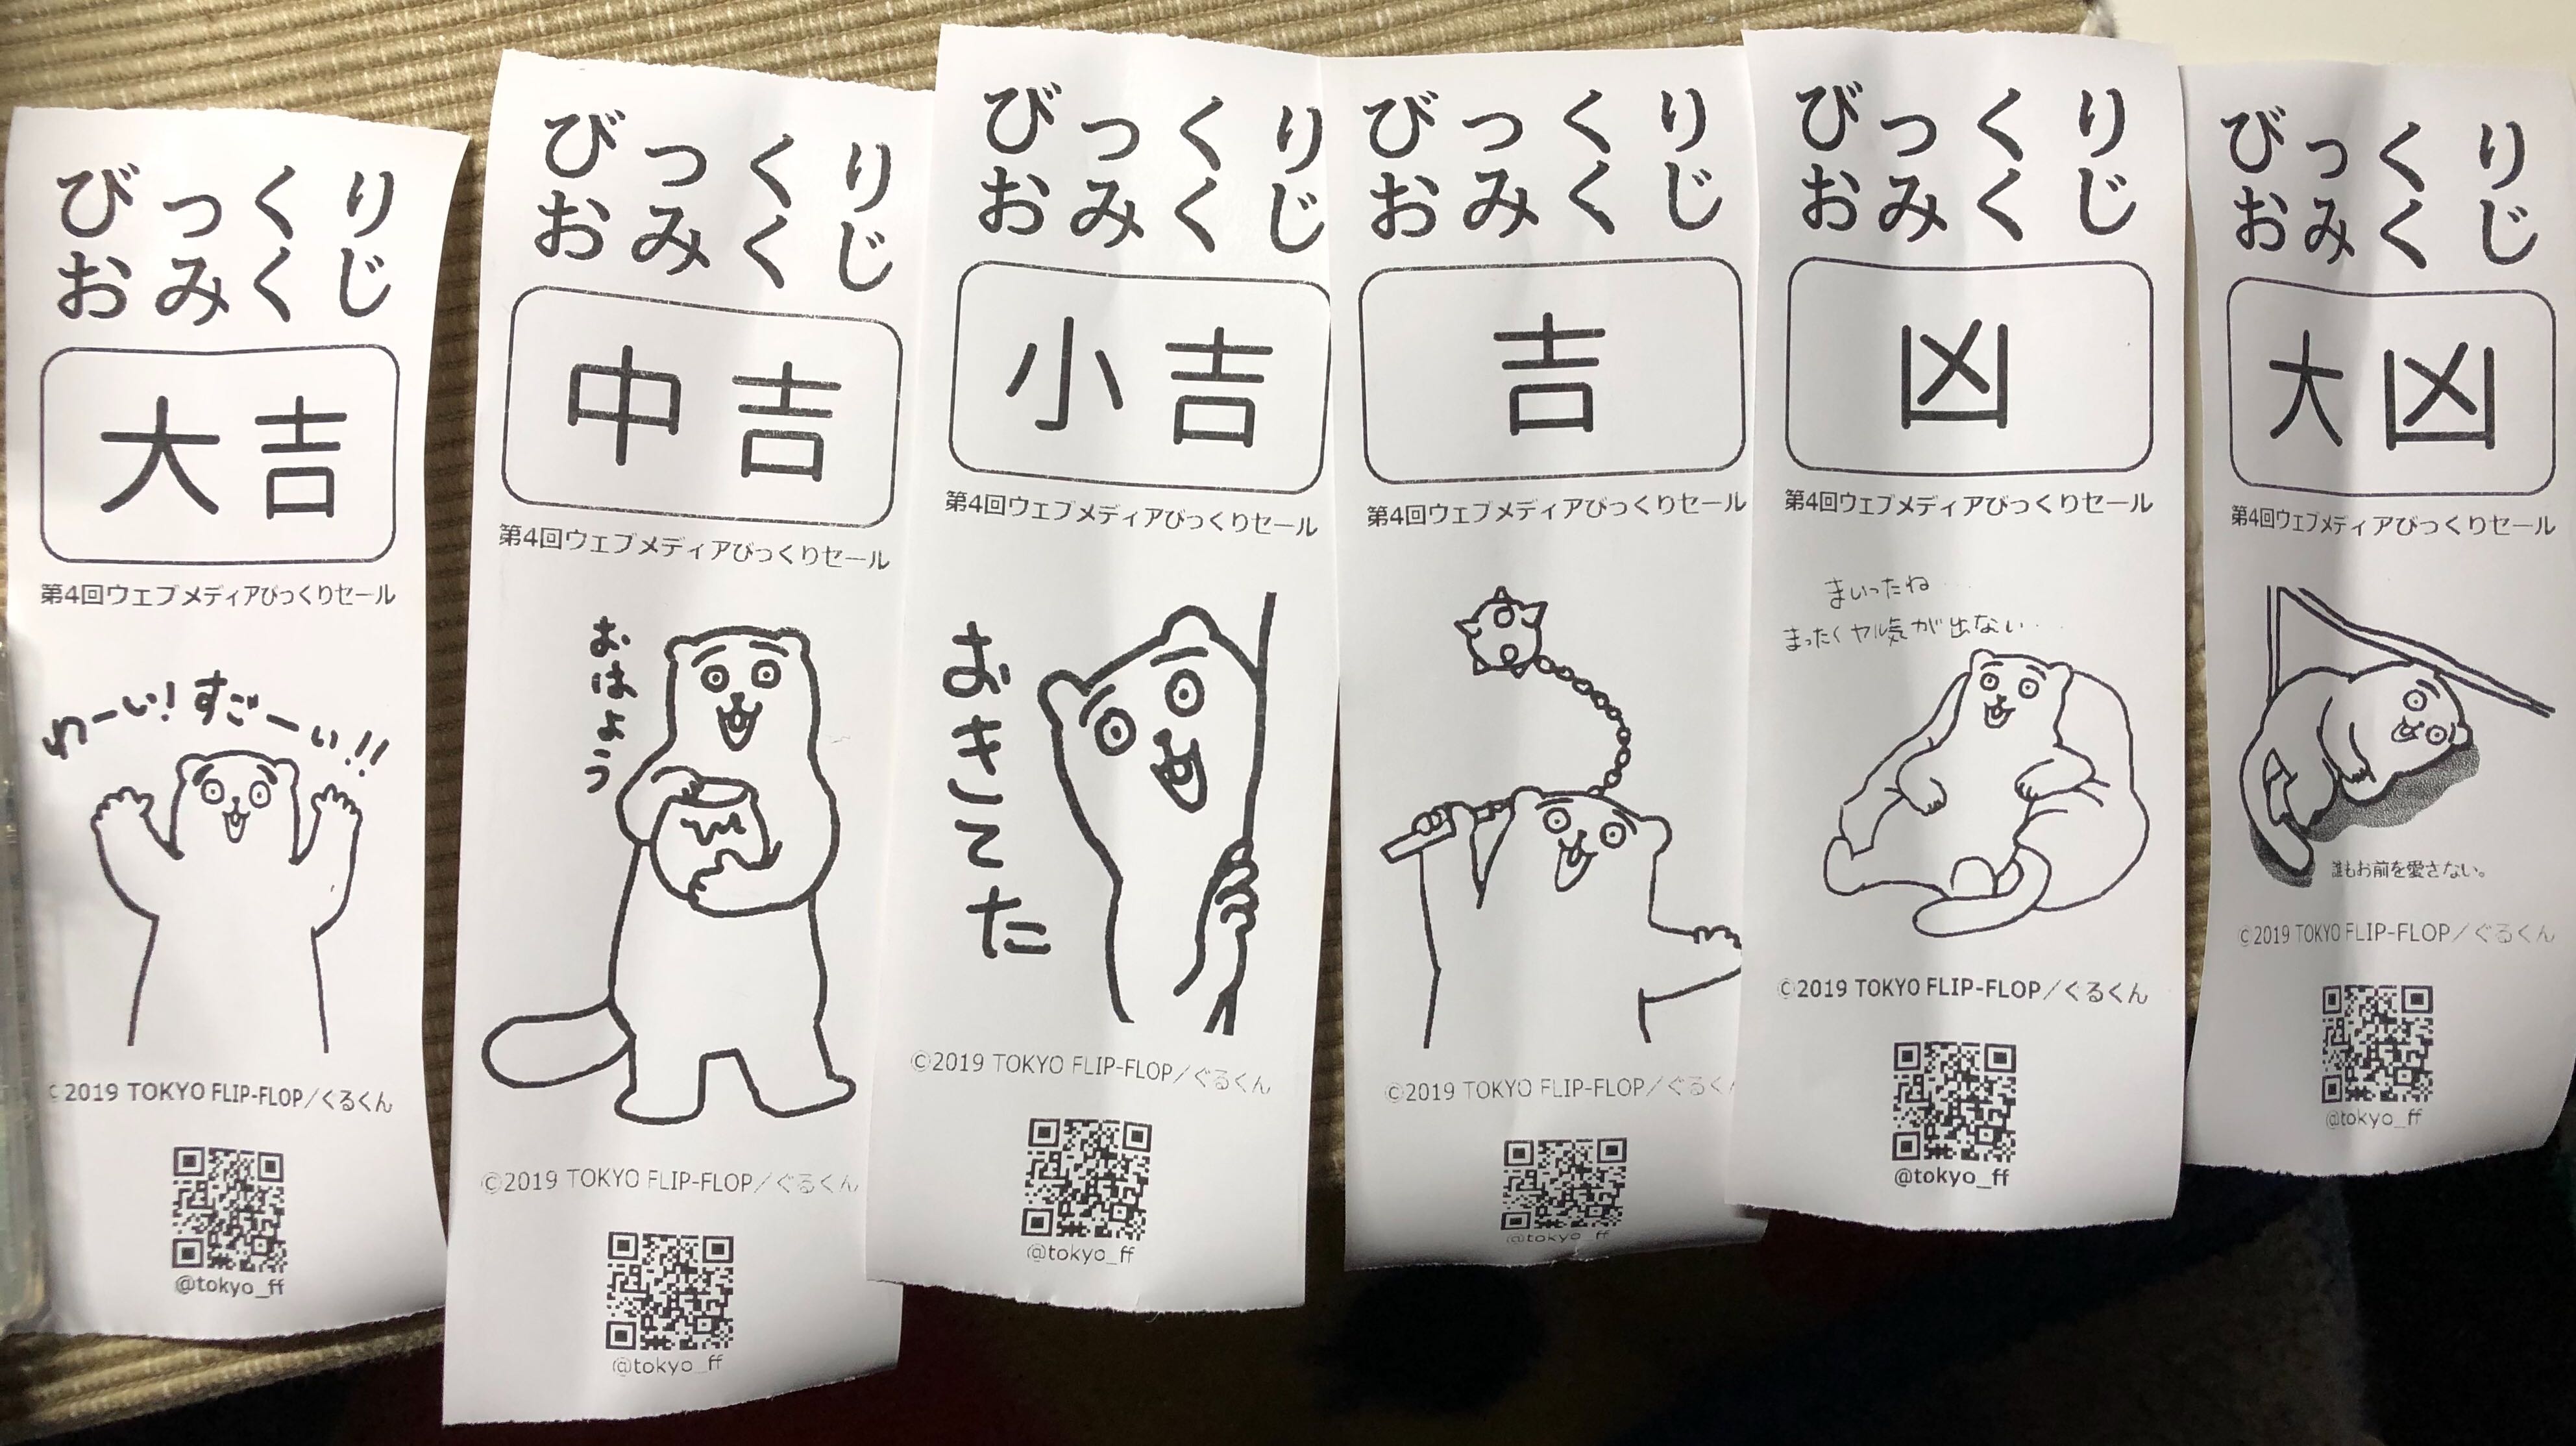 びっくり
おみくじ
大吉
第4回ウェブメディアびっくりセール
わーい!すごーい!!
©2019 TOKYO FLIP-FLOP/ぐるくん
@tokyo_ff
びっくり
おみくじ
中吉
第4回ウェブメディアびっくりセール
おはよう
©2019 TOKYO FLIP-FLOP/ぐるくん
@tokyo_ff
びっくり
おみくじ
小吉
第4回ウェブメディアびっくりセール
おきてた
©2019 TOKYO FLIP-FLOP/ぐるくん
@tokyo_ff
びっくり
おみくじ
吉
第4回ウェブメディアびっくりセール
©2019 TOKYO FLIP-FLOP/ぐるく
@tokyo_ff
びっくり
おみくじ
凶
第4回ウェブメディアびっくりセール
まいったね…
まったくヤル気が出ない…
©2019 TOKYO FLIP-FLOP/ぐるくん
@tokyo_ff
びっくり
おみくじ
大凶
第4回ウェブメディアびっくりセール
誰もお前を愛さない。
©2019 TOKYO FLIP-FLOP/ぐるくん
@tokyo_ff